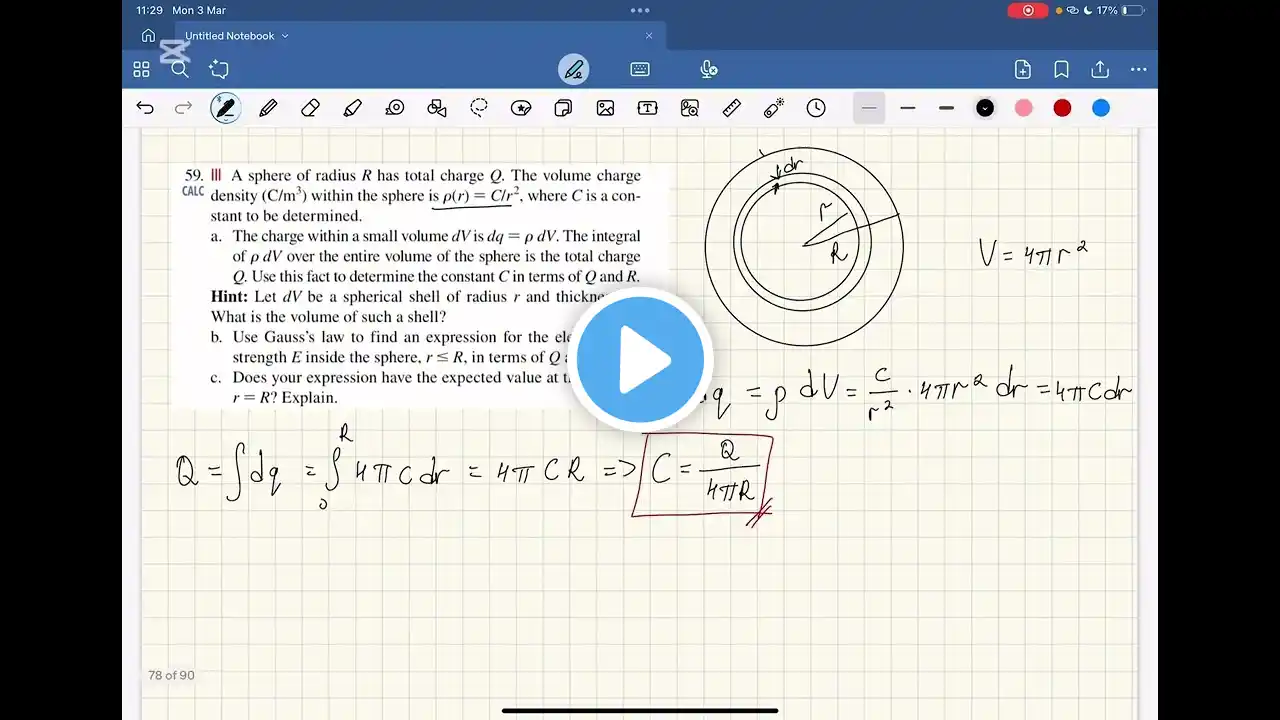 11:29 Mon 3 Mar
17%
Untitled Notebook
59. III A sphere of radius R has total charge Q. The volume charge
CALC density (C/m³) within the sphere is ρ(r) = C/r², where C is a con-
stant to be determined.
a. The charge within a small volume dV is dq = ρ dV. The integral
of ρ dV over the entire volume of the sphere is the total charge
Q. Use this fact to determine the constant C in terms of Q and R.
Hint: Let dV be a spherical shell of radius r and
What is the volume of such a shell?
b. Use Gauss's law to find an expression for the
strength E inside the sphere, r ≤ R, in terms of Q
c. Does your expression have the expected value at
r = R? Explain.
dr
r
R
V = 4πr²
q = ρ dV = c/r² · 4πr² dr = 4πcdr
Q = ∫dq = ∫₀ᴿ 4πcdr = 4πCR => C = Q/4πR
78 of 90